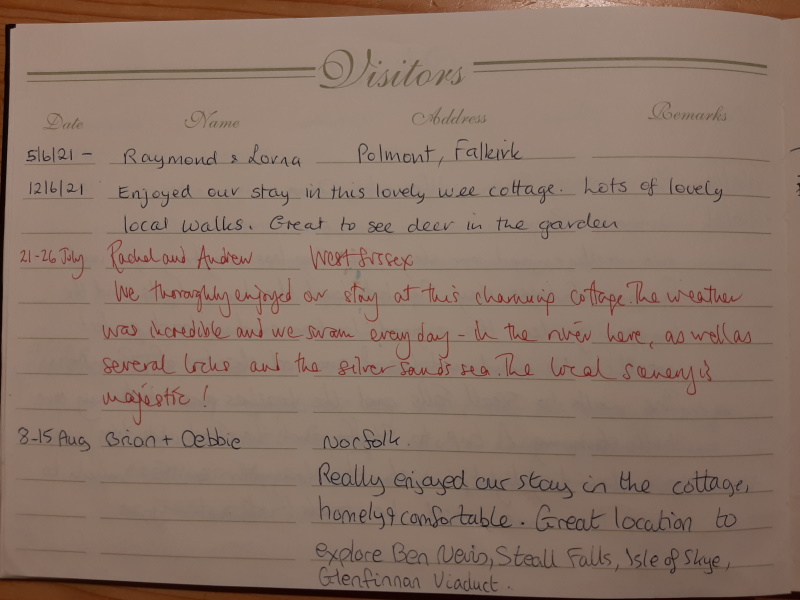 Visitors
Date Name Address Remarks
5/6/21 - Raymond & Lorna Polmont, Falkirk
12/6/21 Enjoyed our stay in this lovely wee cottage. Lots of lovely
local walks. Great to see deer in the garden
21-26 July Rachel and Andrew West Sussex
We thoroughly enjoyed our stay at this charming cottage. The weather
was incredible and we swam every day - in the river here, as well as
several lochs and the silver sands sea. The local scenery is
majestic!
8-15 Aug Brian + Debbie Norfolk.
Really enjoyed our stay in the cottage,
homely & comfortable. Great location to
explore Ben Nevis, Steall Falls, Isle of Skye,
Glenfinnan Viaduct.